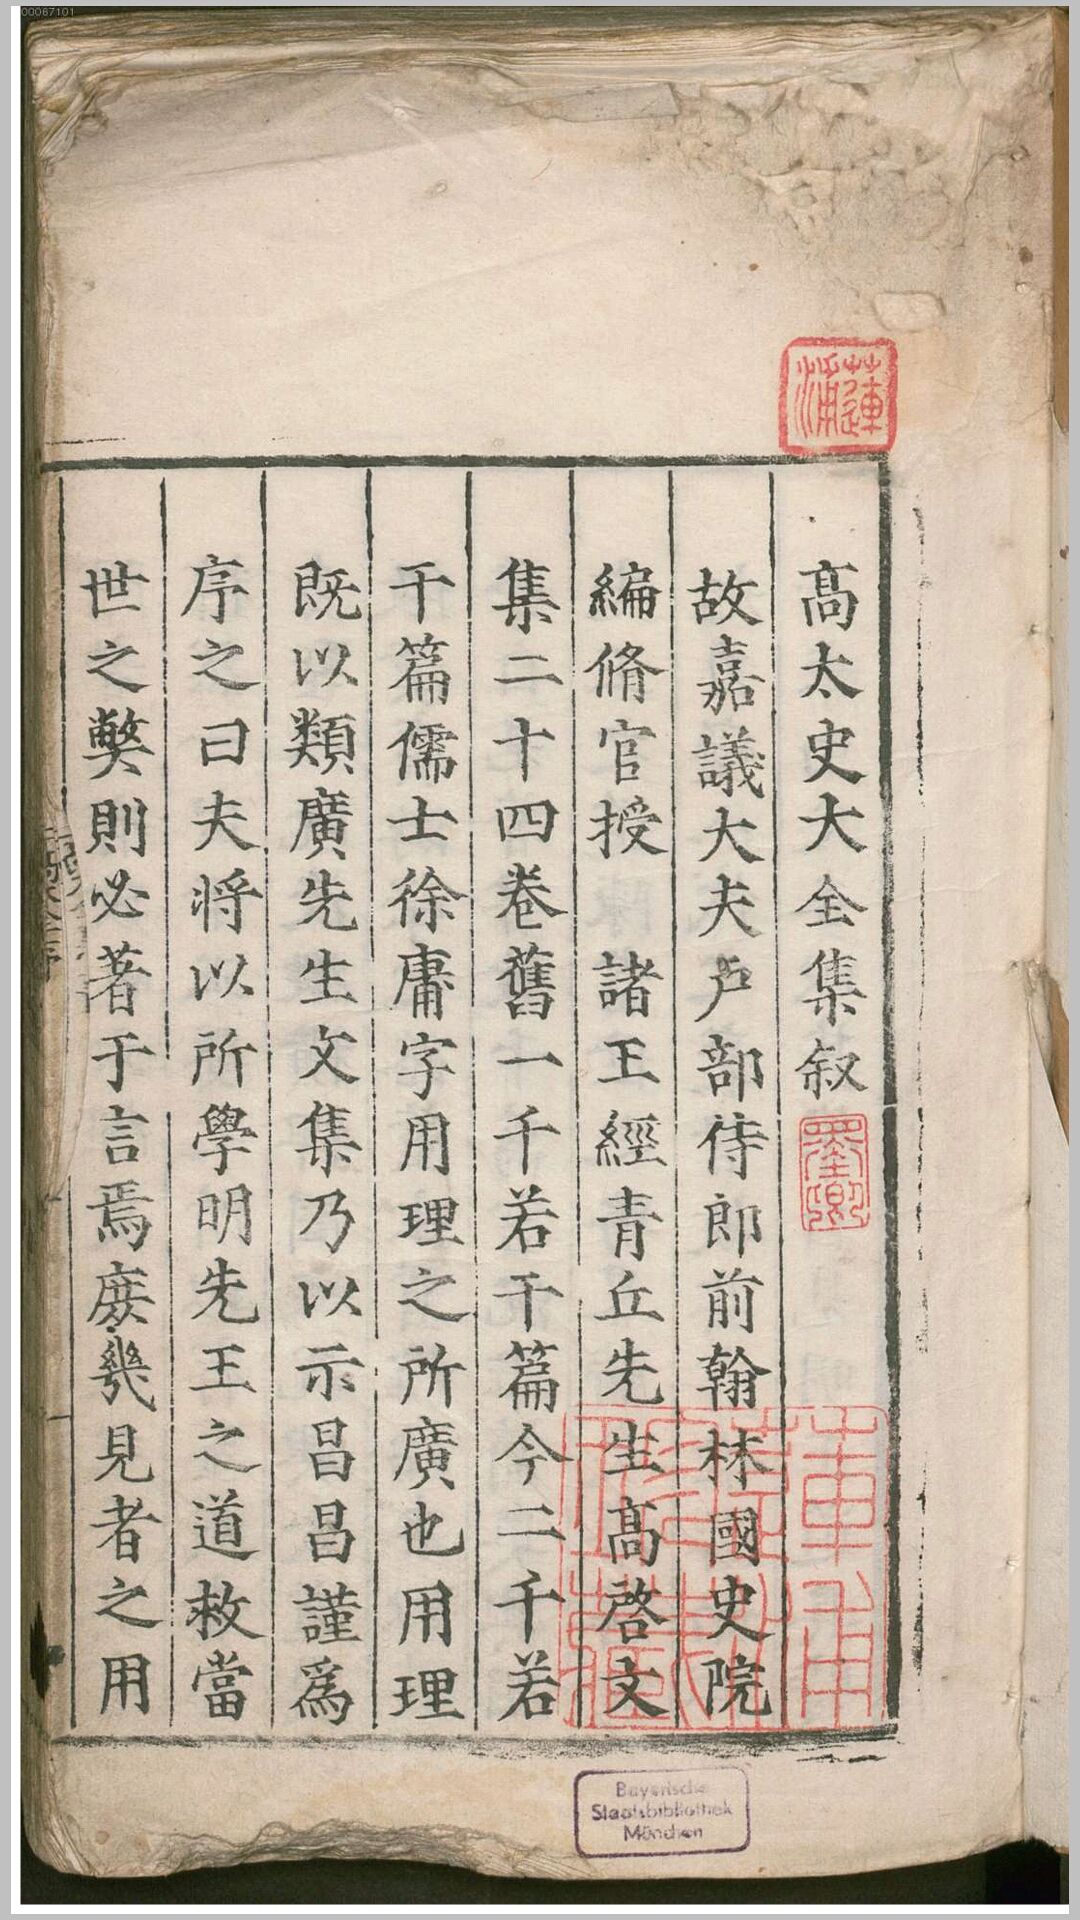 00067101
蓮浦
高太史大全集叙
故嘉議大夫戶部侍郎前翰林國史院
編脩官授 諸王經青丘先生高啓文
集二十四卷舊一千若干篇今二千若
干篇儒士徐庸字用理之所廣也用理
既以類廣先生文集乃以示昌昌謹爲
序之曰夫將以所學明先王之道救當
世之獘則必著于言焉庻幾見者之用
Bayerische
Staatsbibliothek
München